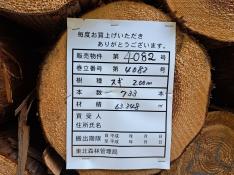 毎度お買上げいただき
ありがとうございます。
販売物件 第 4082 号
巻立番号 第 4082 号
樹種 スギ 2.00m
本数 733 本
材積 63.248 m³
買受人
住所氏名
搬出期限 自 平成 年 月 日
至 平成 年 月 日
東北森林管理局